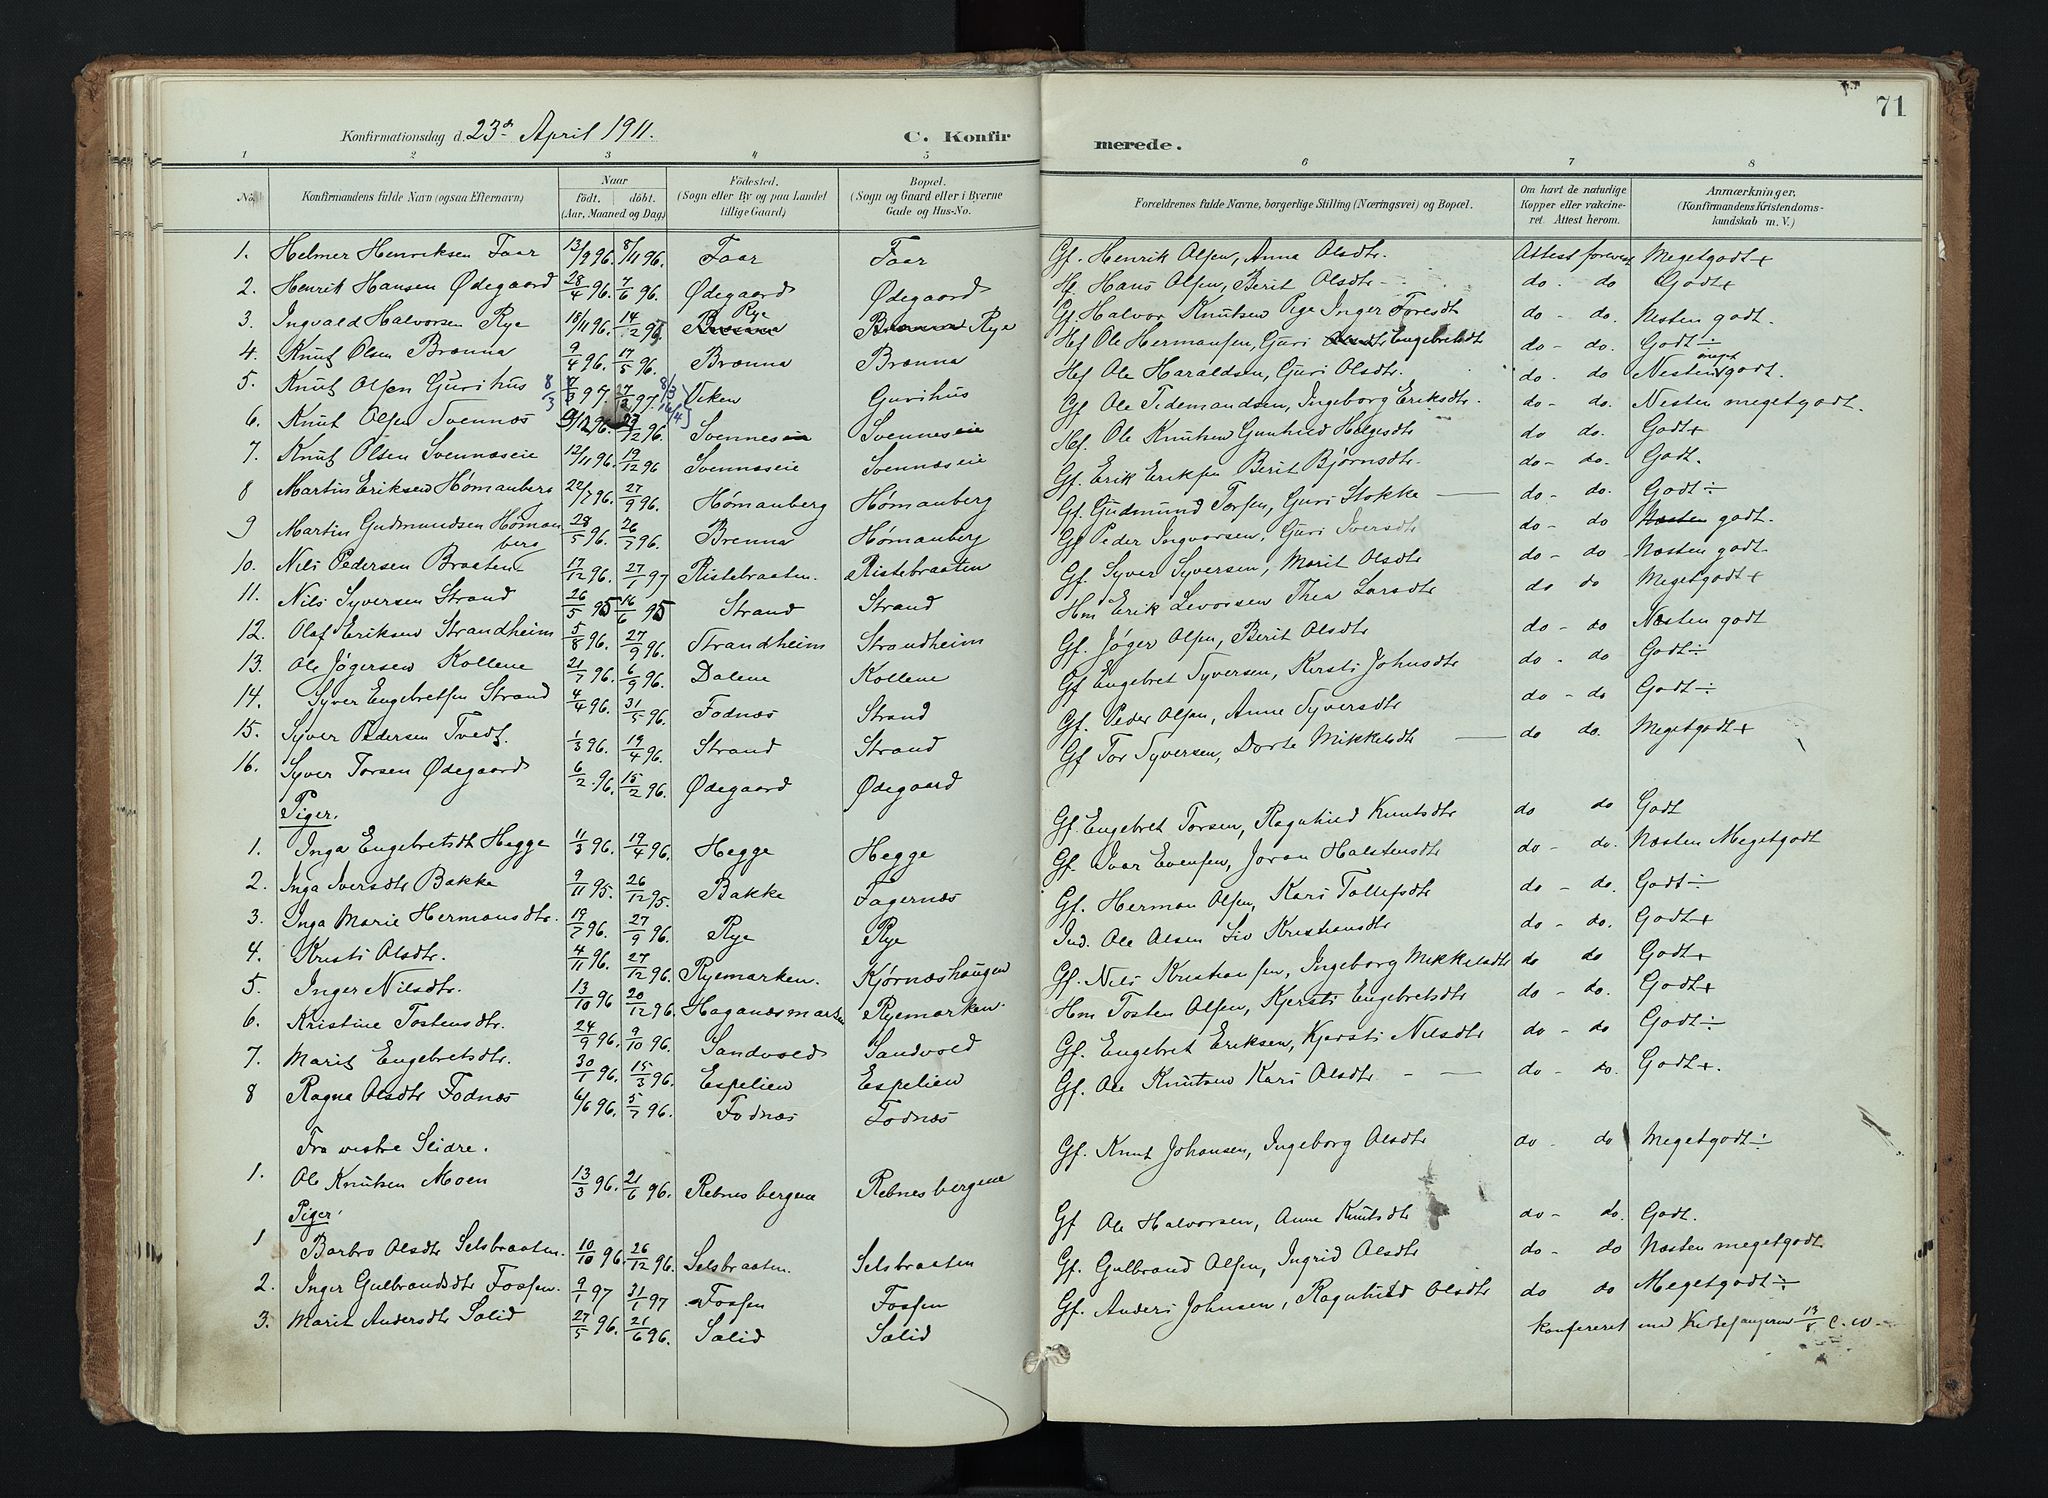 71
Konfirmationsdag d. 23de April 1911.
C. Konfirmerede.
1 2 3 4 5 6 7 8
No. Konfirmandens fulde Navn (ogsaa Efternavn) Naar födt. döbt. (Aar, Maaned og Dag) Födested. (Sogn eller By og paa Landet tillige Gaard) Bopæl. (Sogn og Gaard eller i Byerne Gade og Hus-No. Forældrenes fulde Navne, borgerlige Stilling (Næringsvei) og Bopæl. Om havt de naturlige Kopper eller vakcineret. Attest herom. Anmærkninger. (Konfirmandens Kristendomskundskab m. V.)
1. Helmer Henriksen Faar 13/9 96. 8/11 96. Faar Faar Gf. Henrik Olsen, Anna Olsdtr. Attest forevist Megetgodt+
2. Henrik Hansen Ødegaard 28/4 96. 7/6 96. Ødegaard Ødegaard Gf. Hans Olsen, Berit Olsdtr do. do Godt+
3. Ingvald Halvorsen Rye 18/11 96. 14/2 97 Rye Rye Gf. Halvor Knutsen Rye Inger Toresdt do - do. Nesten godt.
4. Knut Olsen Brænna 9/4 96. 17/5 96. Brænna Brænna Gf Ole Hermansen, Guri Engebretsdt do - do. Godt÷
5. Knut Olsen Gurihus 7/3 97. 7/3 97. 8/3 8/3 16/4 Viken Gurihus Gf Ole Haraldsen, Guri Olsdtr. do. do Nesten meget godt.
6. Knut Olsen Svennæs 9/12 96. 27/12 96. Svennes Svenneseie Gf Ole Tidemandsen, Ingeborg Eriksdtr. do - do. Nesten megetgodt.
7. Knut Olsen Svennæseie 12/11 96. 19/12 96 Svennæseie Svennæseie Gf. Ole Knutsen Gunhild Helgesdtr do do. Godt+
8 Martin Eriksen Hømanberg 22/7 96. 27/9 96. Hømanberg Hømanberg Gf. Erik Eriksen Berit Bjørnsdtr. do - do. Godt.
9 Martin Gudmundsen Hømanberg 28/5 96. 26/7 96. Brenna Hømanberg Gf. Gudmund Torsen, Guri Stokke do - do. Godt÷
10. Nils Pedersen Braaten 17/12 96. 27/1 97 Ristebraaten. Ristebraaten Gf Peder Ingvorsen, Guri Iversdtr do - do Næsten godt.
11. Nils Syversen Strand 26/5 95 16/6 95 Strand Strand Gf. Syver Syversen, Marit Olsdtr do - do Næsten godt
12. Olaf Eriksen Strandheim 5/8 96. 27/9 96. Strandheim Strandheim Hm Erik Sevorsen Thea Larsdtr do do Megetgodt+
13. Ole Jøgersen Kollene 21/7 96. 6/9 96. Dalene Kollene Gf. Jøger Olsen, Berit Olsdtr do - do Næsten godt
14. Syver Engebretsen Strand 4/4 96. 31/5 96. Fodnæs Strand Gf Engebret Syversen, Kirsti Johnsdtr do - do Godt÷
15. Syver Pedersen Tvedt. 1/3 96. 19/4 96. Strand Strand Gf. Peder Olsen, Anne Syversdtr do - do Godt÷
16. Syver Torsen Ødegaard 6/2 96. 15/2 96. Ødegaard Ødegaard Gf Tor Syversen, Dorte Mikkelsdtr do do. Megetgodt+
Piger.
1. Inga Engebretsdt Hegge 11/3 96. 19/4 96. Hegge Hegge Gf. Engebret Torsen, Ragnhild Knutsdtr do do Godt
2. Inga Iversdtr Bakke 9/11 95. 26/12 95. Bakke Fagernæs Gf. Ivar Evensen, Joran Halstensdtr do - do. Næsten Megetgodt
3. Inga Marie Hermansdtr. 19/7 96. 27/9 96. Rye Rye Gf. Herman Olsen, Kari Tollefsdtr do - do. Godt÷
4. Kristi Olsdtr. 4/11 96. 27/12 96. Ryemarken. Kjørnæshaugen Ind. Ole Olsen Liv Kristiansdtr do - do. Godt+
5. Inger Nilsdtr. 13/10 96 20/12 96. Haganæsmarken Ryemarken. Gf. Nils Kristiansen, Ingeborg Mikkelsdtr do do Godt+
6. Kristine Tostensdtr. 24/9 96. 9/10 96. Sandvold Sandvold Hm Tosten Olsen, Kjersti Engebretsdtr do - do. Godt+
7. Marit Engebretsdtr. 30/1 96. 15/3 96. Espelien Espelien Gf. Engebret Eriksen, Kjersti Nilsdtr do - do Godt÷
8 Ragna Olsdtr Fodnæs 6/6 96. 5/7 96. Fodnæs Fodnæs Gf. Ole Knutsen Kari Olsdtr do - do. Godt+.
Fra vestre Slidre.
1. Ole Knutsen Moen 13/3 96. 21/6 96. Rebnesbergene Rebnesbergene Gf. Knut Johansen, Ingeborg Olsdtr do - do Megetgodt÷
Piger.
1 Barbro Olsdtr Selsbraaten. 10/10 96. 26/12 96. Selsbraaten. Selsbraaten Gf Ole Halvorsen, Anne Knutsdtr do - do. Godt.
2. Inger Gulbrandsdtr Fossen. 9/1 97 31/1 97 Fossen Fossen Gf. Gulbrand Olsen, Ingrid Olsdtr do - do Næsten megetgodt
3. Marit Andersdtr Sælid 27/5 96. 21/6 96. Sælid Sælid Gf. Anders Johnsen, Ragnhild Olsdtr do do Megetgodt÷
konfereret med Kirkesangeren 13/8 C. W.